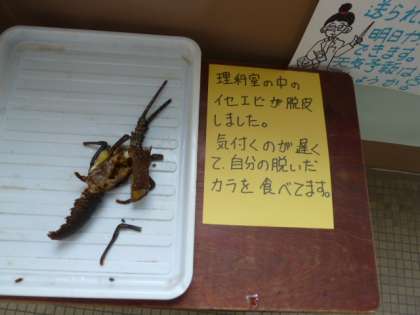 理科室の中の
イセエビが脱皮
しました。
気付くのが遅く
て、自分の脱いだ
カラを食べてます。
送られ
明日や
できます。
天気予報は